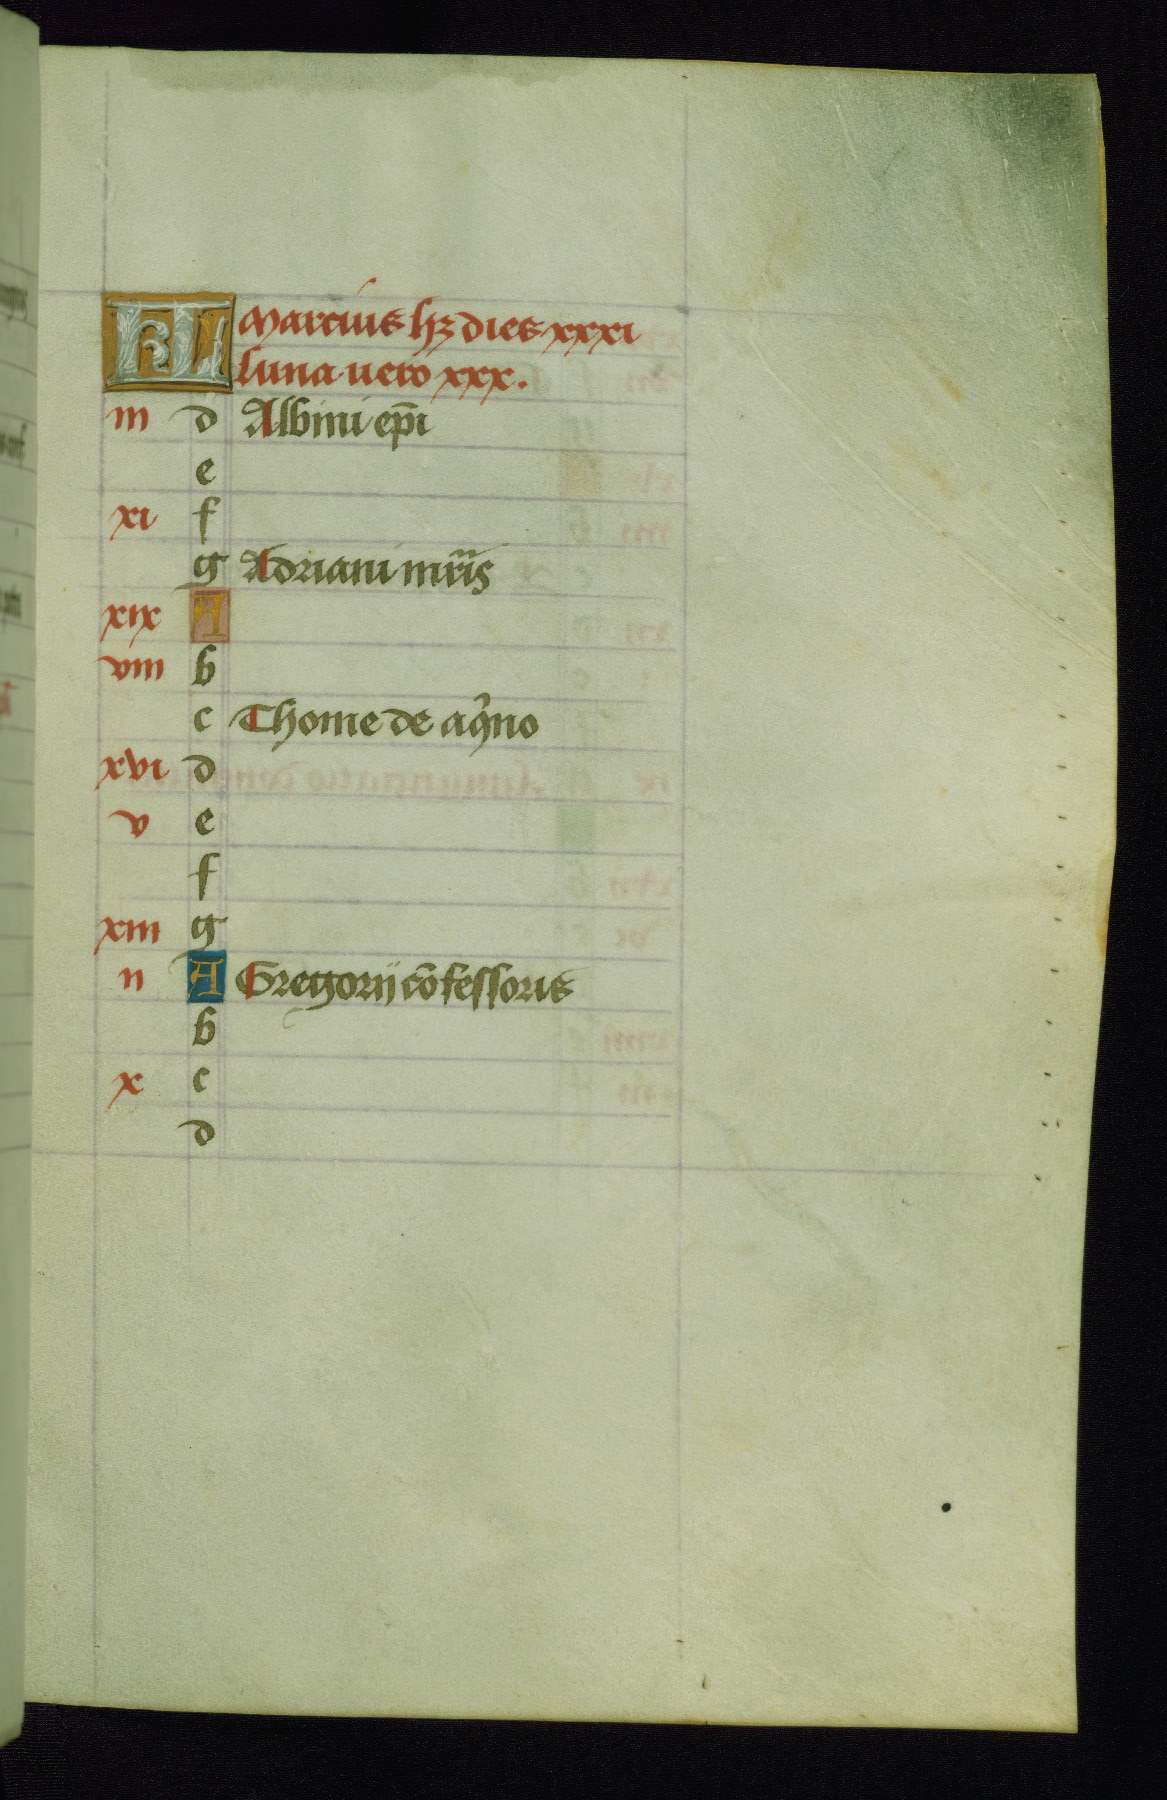 KL Marcius hꝫ dies xxxi
luna vero xxx.
iii d Albini ep̄i
e
xi f
g Adriani mr̄is
xix A
viii b
c Thome de aqͥno
xvi d
v e
f
xiii g
ii A Gregorij cōfessoris
b
x c
d